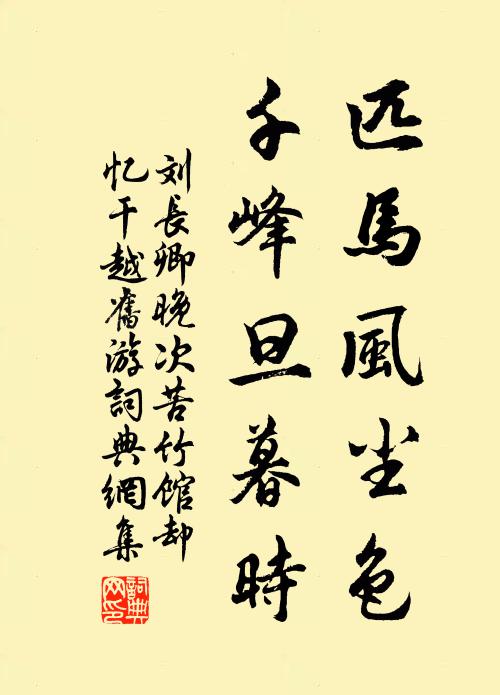 匹馬風尘色
千峰旦暮時
刘長卿晚次苦竹馆却
忆干越舊游詞典網集